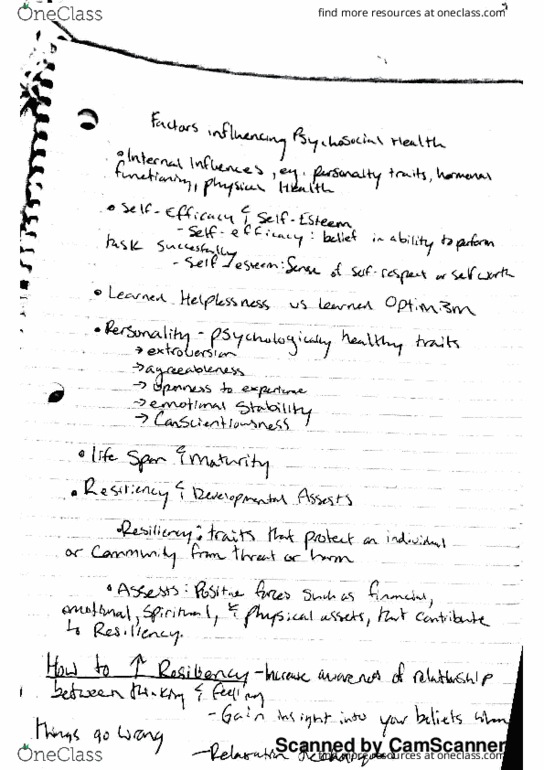 OneClass
find more resources at oneclass.com
Factors influencing Psychosocial Health
• Internal Influences, eg. personalty traits, hormonal
functioning, physical Health
• Self-Efficacy & Self-Esteem
- Self-efficacy: belief in ability to perform
task successfully
- Self esteem: Sense of self-respect or self worth
• Learned Helplessness vs learned Optimism
• Personality - psychologically healthy traits
→ extroversion
→ agreeableness
→ openness to experience
→ emotional Stability
→ Conscientiousness
• life Span & Maturity
• Resiliency & Developmental Assests
• Resiliency: traits that protect an individual
or Community from threat or harm
• Assests: Positive forces such as financial,
emotional, Spiritual, & physical assets, that contribute
to Resiliency.
How to ↑ Resiliency - Increase awareness of relationship
between thinking & feeling
- Gain insight into your beliefs when
things go wrong
- Relaxation
Scanned by CamScanner
OneClass
find more resources at oneclass.com